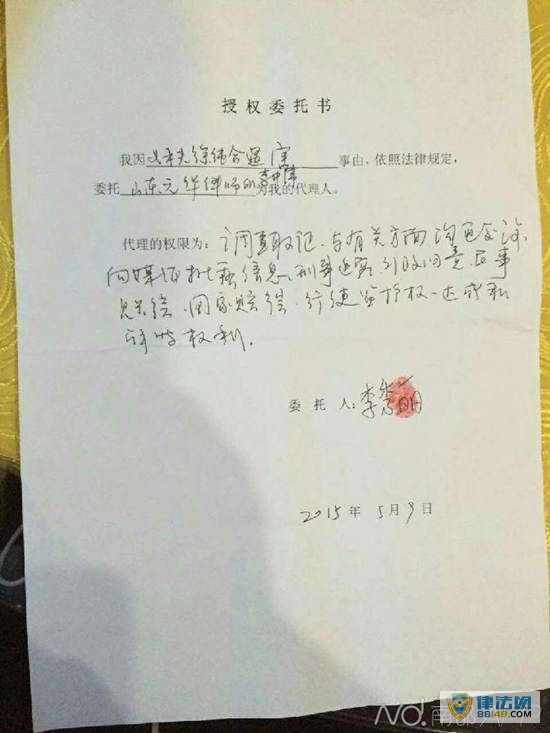 授权委托书
我因丈夫徐纯合遇害事由,依照法律规定,
李仲伟
委托山东元祥律师所为我的代理人。
代理的权限为:调查取证、与有关方面沟通交涉、
向媒体批露信息、刑事追究、行政问责、民事
赔偿、国家赔偿、行使监护权、达成和
解等权利。
委托人:李
2015年5月9日
南都
律法网
88148.com